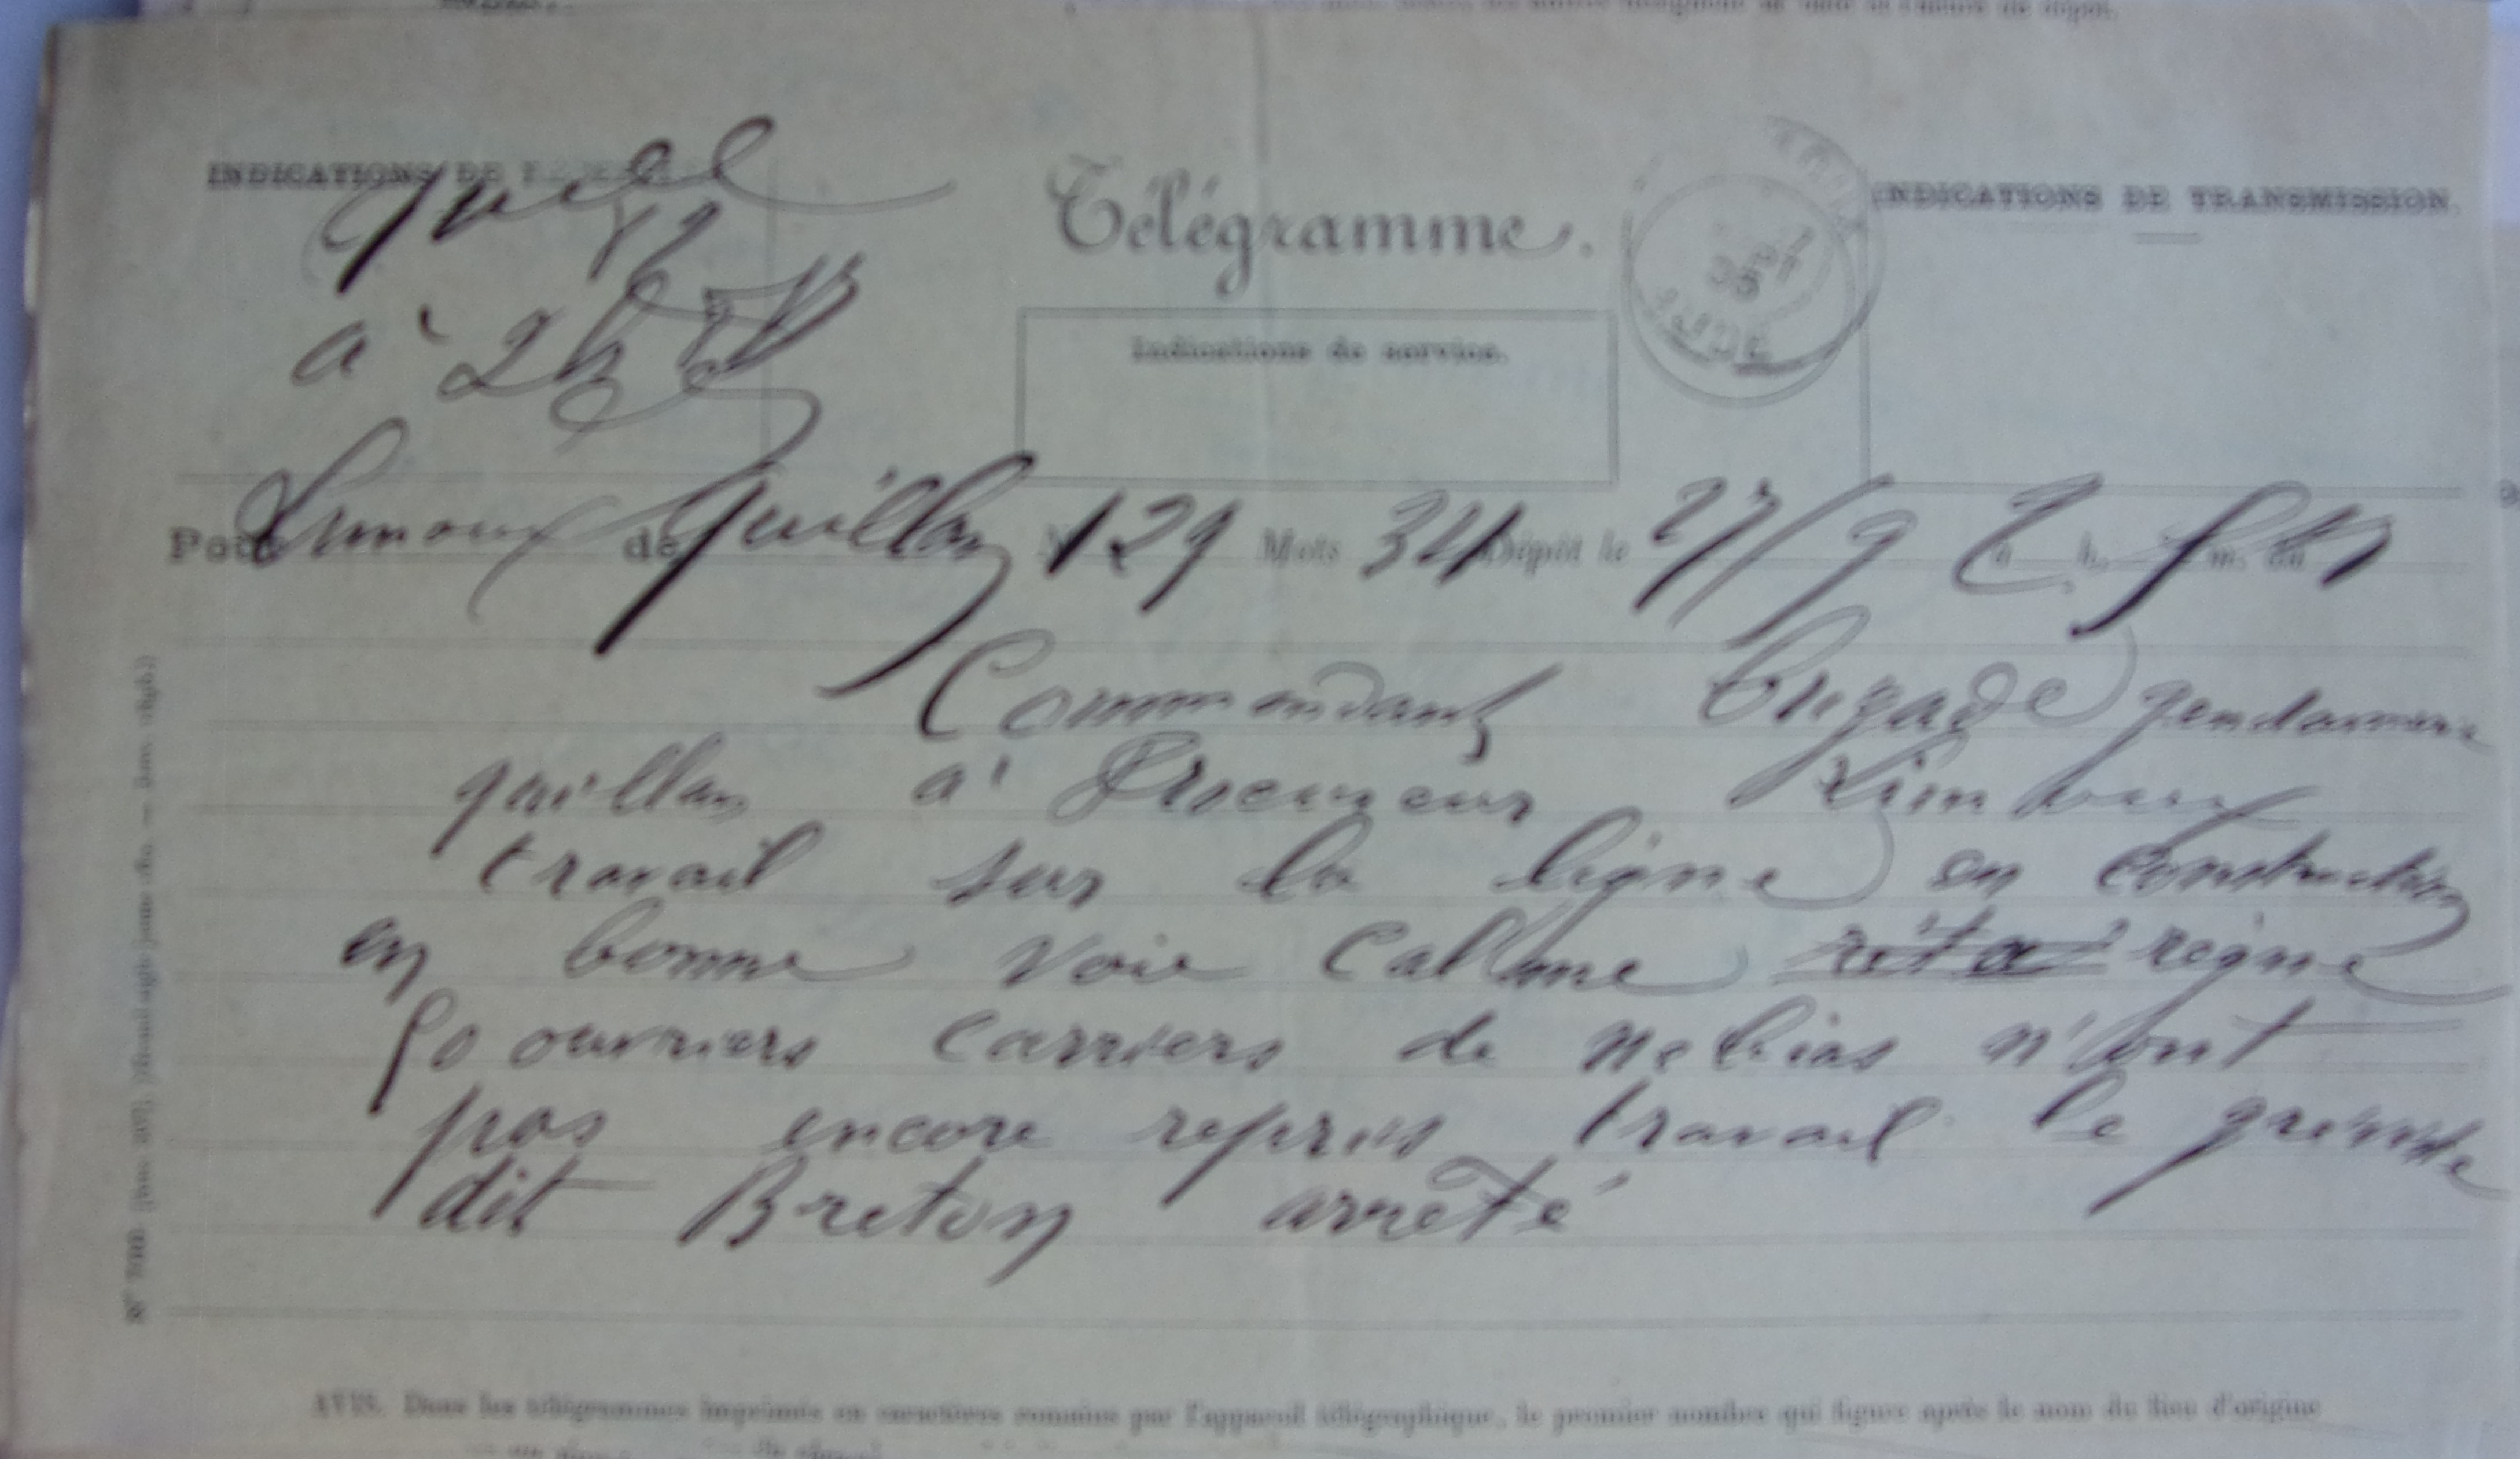 INDICATIONS DE
Télégramme.
INDICATIONS DE TRANSMISSION.
à 2h
Indications de service.
Pour Limoux de Quillan N 129 Mots 34 Dépôt le 27/9 à h. m. du
Commandant brigade gendarmerie
quillan à Procureur Limoux
travail sur la ligne en construction
en bonne voie Calme règne
50 ouvriers carriers de Nebias n'ont
pas encore repris travail le gréviste
dit Breton arrêté
AVIS. Dans les télégrammes imprimés en caractères romains par l'appareil télégraphique, le premier nombre qui figure après le nom du lieu d'origine